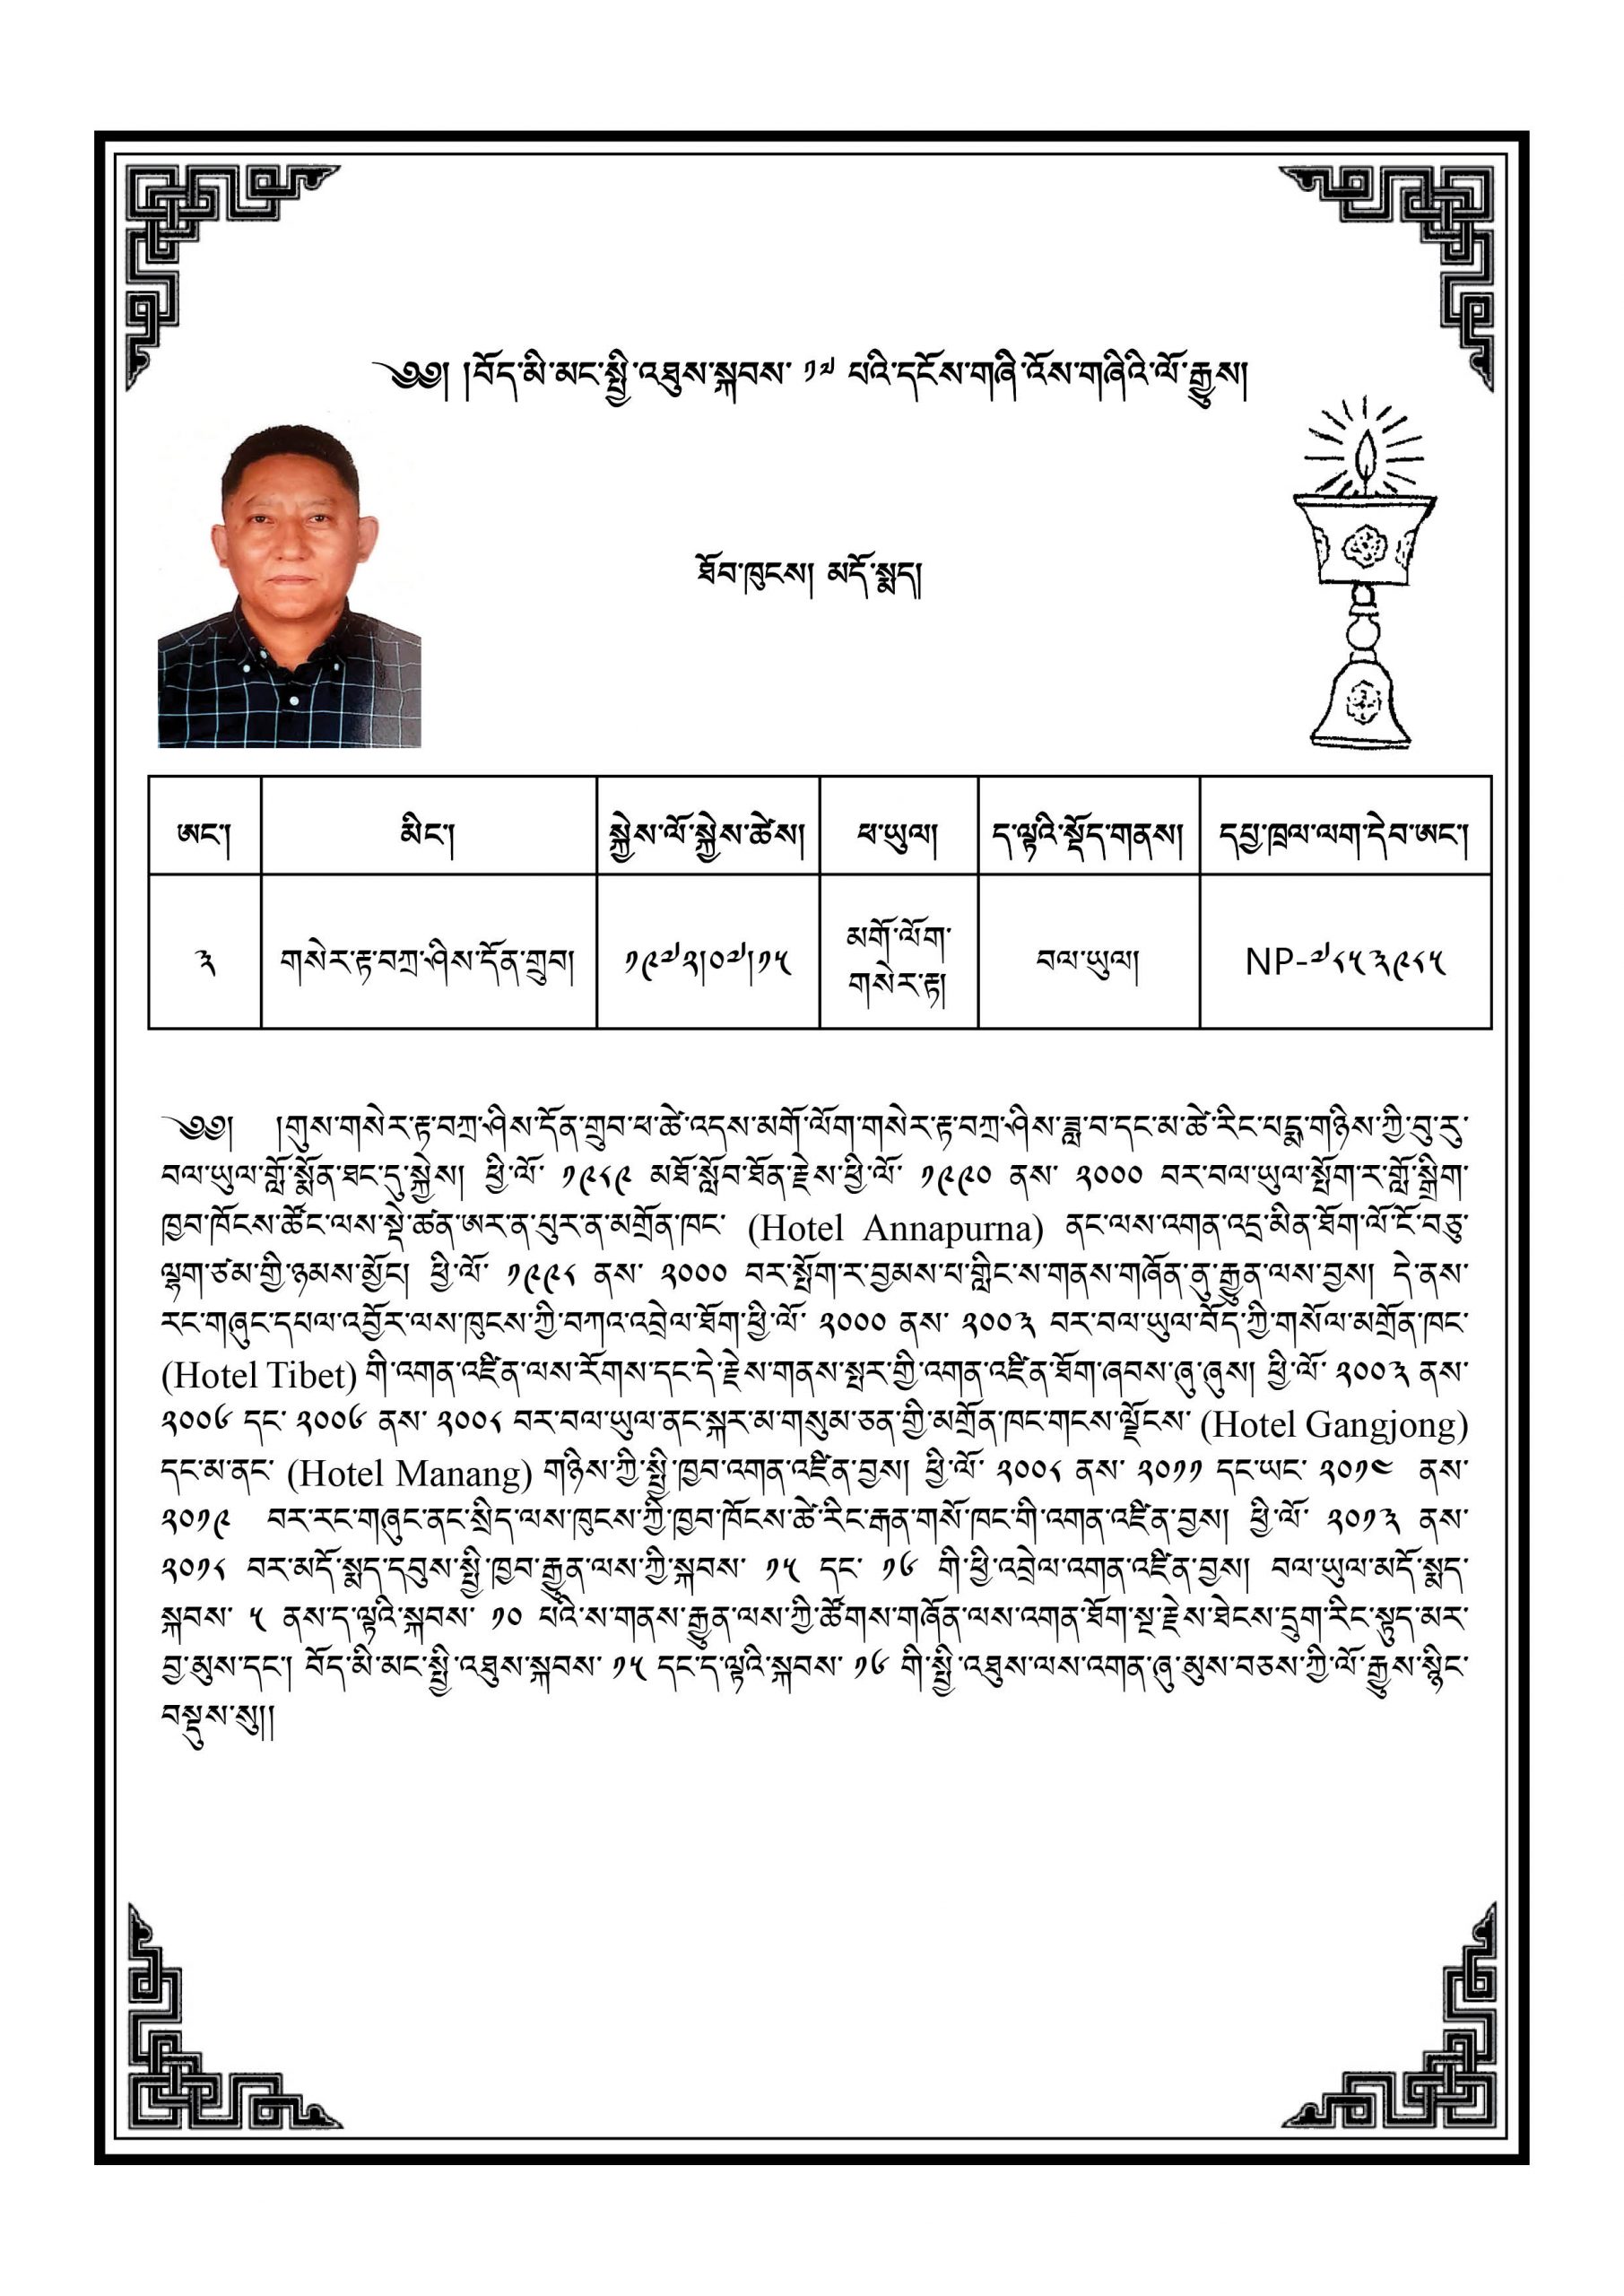 ༄༅། །བོད་མི་མང་སྤྱི་འཐུས་སྐབས་ ༡༧ པའི་དངོས་གཞི་འོས་གཞིའི་ལོ་རྒྱུས།
ཐོབ་ཁུངས། མདོ་སྨད།
ཨང༌། མིང༌། སྐྱེས་ལོ་སྐྱེས་ཚེས། ཕ་ཡུལ། ད་ལྟའི་སྡོད་གནས། དཔྱ་ཁྲལ་ལག་དེབ་ཨང༌།
༣ གསེར་རྟ་བཀྲ་ཤིས་དོན་གྲུབ། ༡༩༧༢།༠༧།༡༥ མགོ་ལོག་གསེར་རྟ། བལ་ཡུལ། NP-༧༨༥༣༩༨༥
༄༅། །གུས་གསེར་རྟ་བཀྲ་ཤིས་དོན་གྲུབ་ཕ་ཚེ་འདས་མགོ་ལོག་གསེར་རྟ་བཀྲ་ཤིས་ཟླ་བ་དང་མ་ཚེ་རིང་པདྨ་གཉིས་ཀྱི་བུ་རུ་
བལ་ཡུལ་གློ་སྨོན་ཐང་དུ་སྐྱེས། ཕྱི་ལོ་ ༡༩༨༩ མཐོ་སློབ་ཐོན་རྗེས་ཕྱི་ལོ་ ༡༩༩༠ ནས་ ༢༠༠༠ བར་བལ་ཡུལ་སྤོག་ར་གློ་སྒྲིག་
ཁྱབ་ཁོངས་ཚོང་ལས་སྡེ་ཚན་ཨར་ན་པུར་ན་མགྲོན་ཁང་ (Hotel Annapurna) ནང་ལས་འགན་འདྲ་མིན་ཐོག་ལོ་ངོ་བཅུ་
ལྷག་ཙམ་གྱི་ཉམས་མྱོང། ཕྱི་ལོ་ ༡༩༩༨ ནས་ ༢༠༠༠ བར་སྤོག་ར་བྱམས་པ་གླིང་ས་གནས་གཞོན་ནུ་རྒྱུན་ལས་བྱས། དེ་ནས་
རང་གཞུང་དཔལ་འབྱོར་ལས་ཁུངས་ཀྱི་བཀའ་འབྲེལ་ཐོག་ཕྱི་ལོ་ ༢༠༠༠ ནས་ ༢༠༠༣ བར་བལ་ཡུལ་བོད་ཀྱི་གསོལ་མགྲོན་ཁང་
(Hotel Tibet) གི་འགན་འཛིན་ལས་རོགས་དང་དེ་རྗེས་གནས་སྤར་གྱི་འགན་འཛིན་ཐོག་ཞབས་ཞུ་ཞུས། ཕྱི་ལོ་ ༢༠༠༣ ནས་
༢༠༠༦ དང་ ༢༠༠༦ ནས་ ༢༠༠༨ བར་བལ་ཡུལ་ནང་སྐར་མ་གསུམ་ཅན་གྱི་མགྲོན་ཁང་གངས་ལྗོངས་ (Hotel Gangjong)
དང་མ་ནང་ (Hotel Manang) གཉིས་ཀྱི་སྤྱི་ཁྱབ་འགན་འཛིན་བྱས། ཕྱི་ལོ་ ༢༠༠༨ ནས་ ༢༠༡༡ དང་ཡང་ ༢༠༡༤ ནས་
༢༠༡༩ བར་རང་གཞུང་ནང་སྲིད་ལས་ཁུངས་ཀྱི་ཁྱབ་ཁོངས་ཚེ་རིང་རྒན་གསོ་ཁང་གི་འགན་འཛིན་བྱས། ཕྱི་ལོ་ ༢༠༡༣ ནས་
༢༠༡༨ བར་མདོ་སྨད་དབུས་སྤྱི་ཁྱབ་རྒྱུན་ལས་ཀྱི་སྐབས་ ༡༥ དང་ ༡༦ གི་ཕྱི་འབྲེལ་འགན་འཛིན་བྱས། བལ་ཡུལ་མདོ་སྨད་
སྐབས་ ༥ ནས་ད་ལྟའི་སྐབས་ ༡༠ པའི་ས་གནས་རྒྱུན་ལས་ཀྱི་ཚོགས་གཞོན་ལས་འགན་ཐོག་སྔ་རྗེས་ཐེངས་དྲུག་རིང་སྟུད་མར་
བྱ་མུས་དང༌། བོད་མི་མང་སྤྱི་འཐུས་སྐབས་ ༡༥ དང་ད་ལྟའི་སྐབས་ ༡༦ གི་སྤྱི་འཐུས་ལས་འགན་ཞུ་མུས་བཅས་ཀྱི་ལོ་རྒྱུས་སྙིང་
བསྡུས་སུ།།